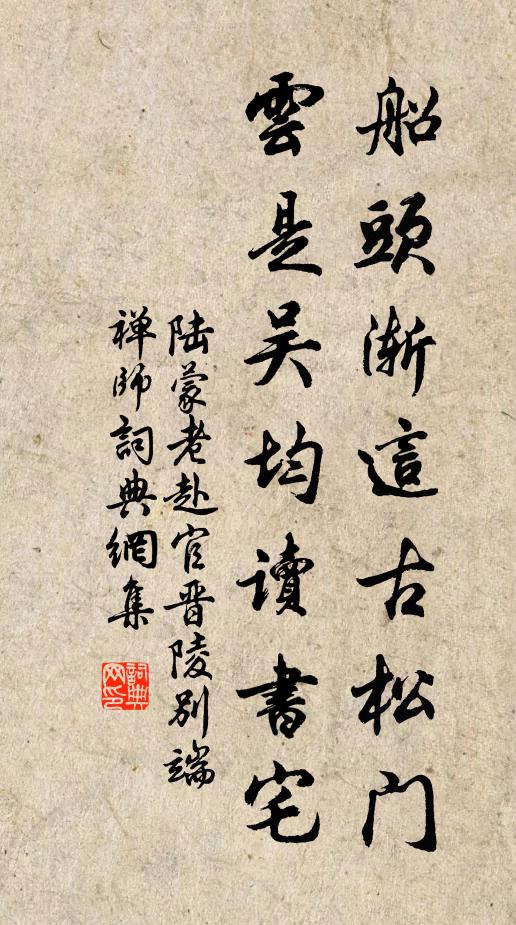 船頭漸這古松門
雲是吳均讀書宅
陆蒙老赴官晋陵别端
禅師詞典網集
詞典网印